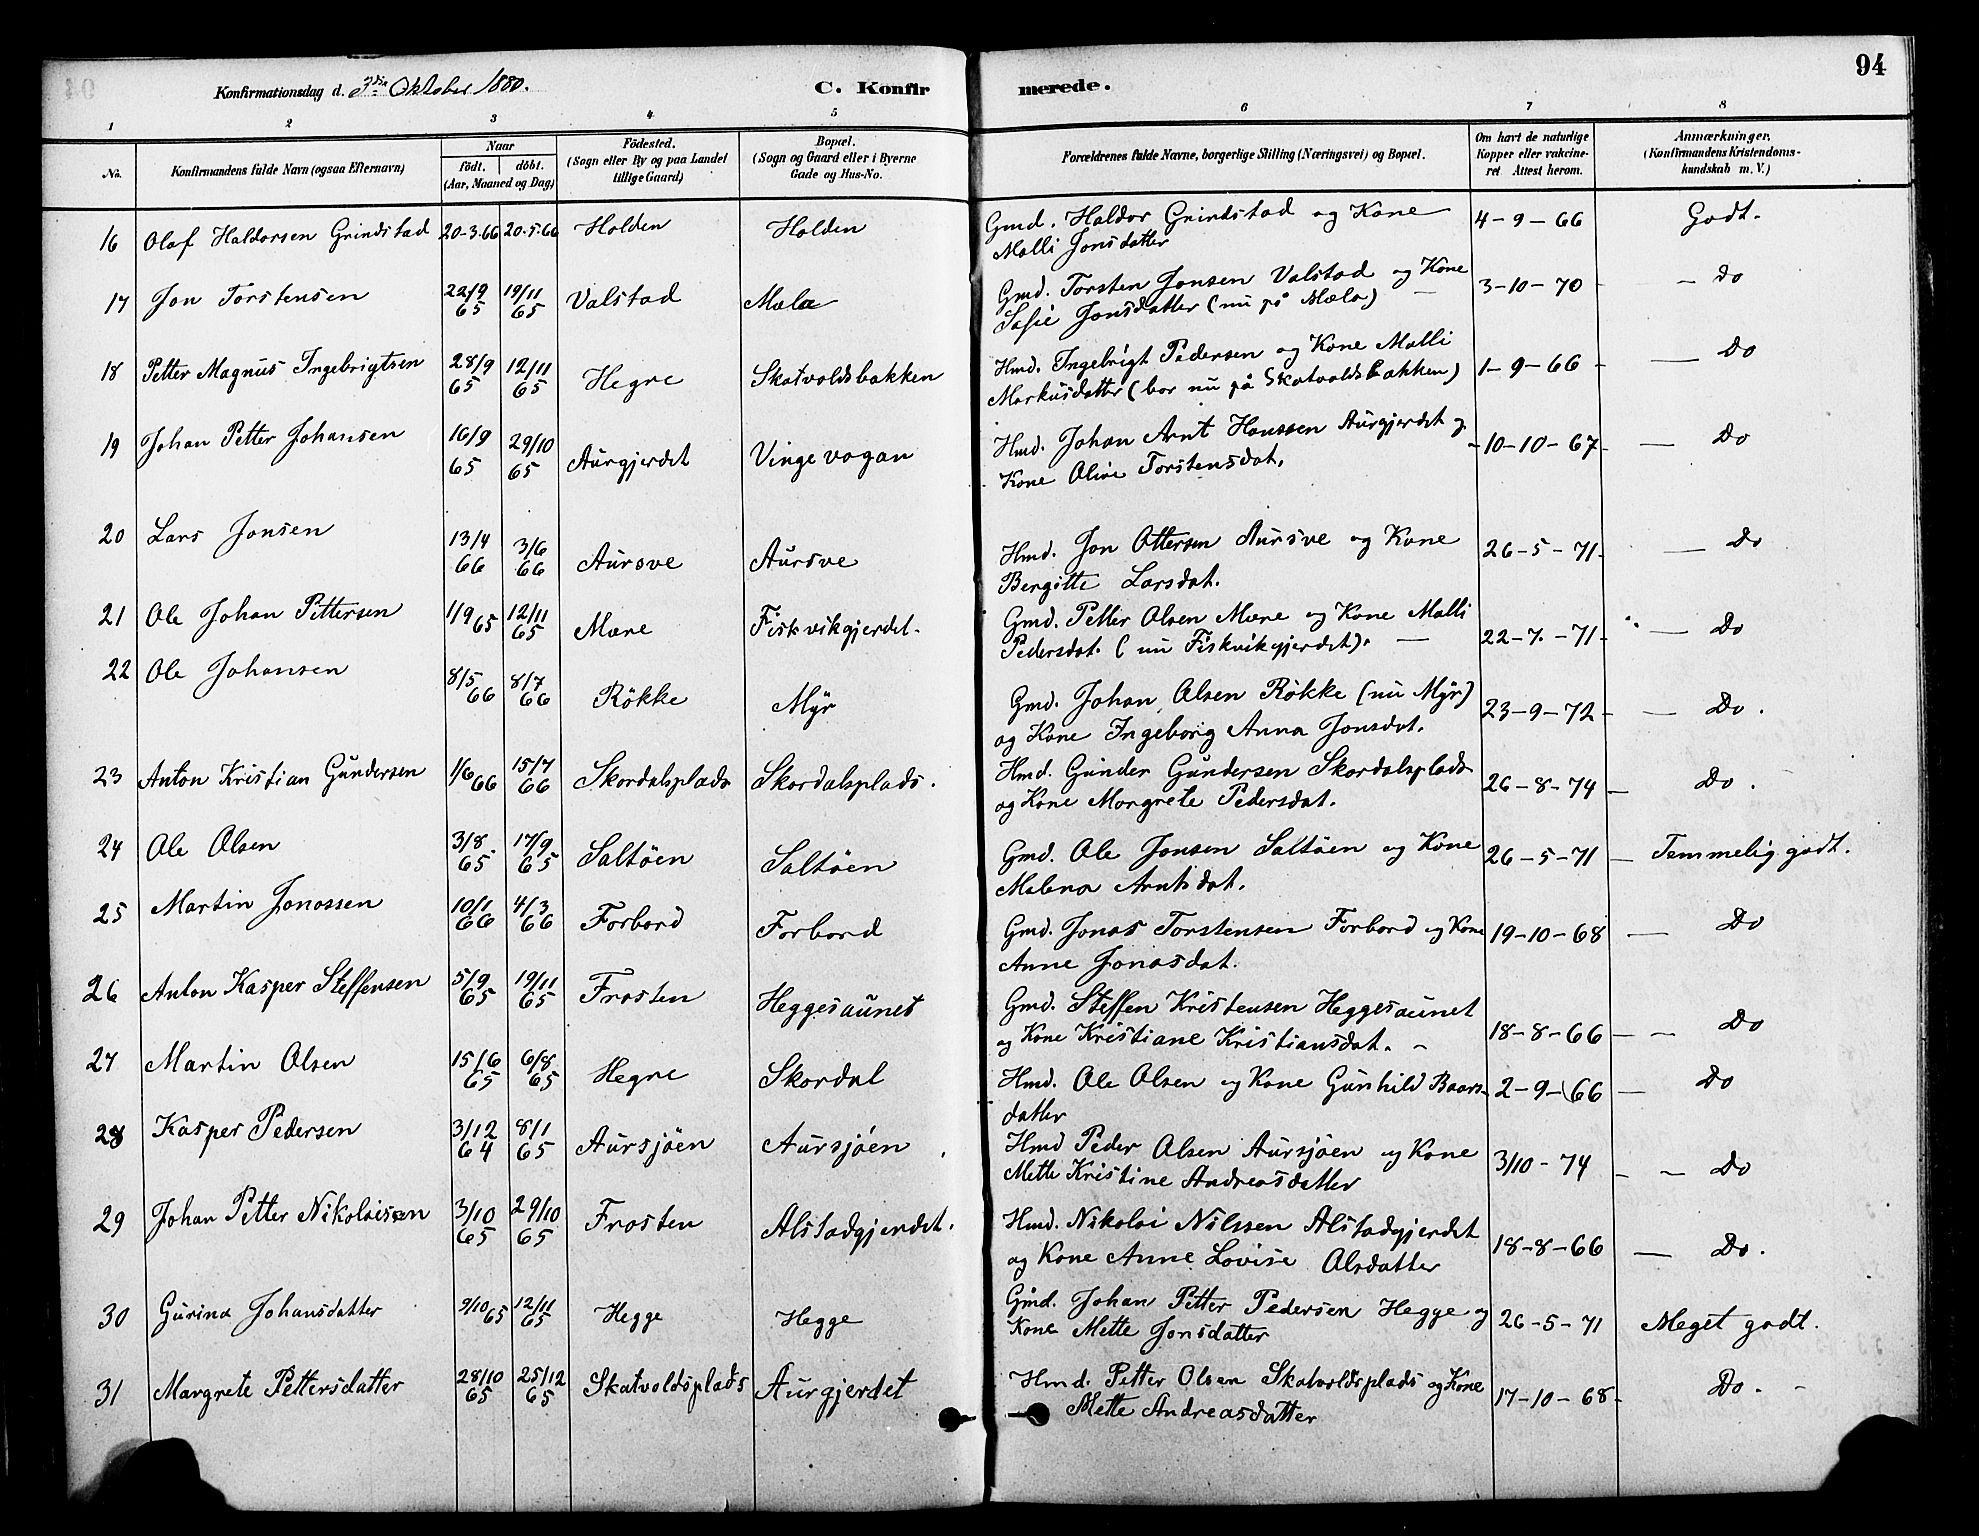 Konfirmationsdag d. 3die Oktober 1880.
C. Konfirmerede.
94
1 2 3 4 5 6 7 8
No.
Konfirmandens fulde Navn (ogsaa Efternavn)
Naar
födt. döbt.
(Aar, Maaned og Dag)
Födested.
(Sogn eller By og paa Landet
tillige Gaard)
Bopæl.
(Sogn og Gaard eller i Byerne
Gade og Hus-No.
Forældrenes fulde Navne, borgerlige Stilling (Næringsvei) og Bopæl.
Om havt de naturlige
Kopper eller vakcine-
ret Attest herom.
Anmærkninger.
(Konfirmandens Kristendoms-
kundskab m. V.)
16 Olaf Haldorsen Grindstad 20-3-66 20-5-66 Holden Holden Gmd. Haldor Grindstad og Kone 4-9-66 Godt.
Malli Jonsdatter
17 Jon Torstensen 22/9 65 19/11 65 Valstad Mæla Gmd. Torsten Jonsen Valstad og Kone 3-10-70 - Do
Sofie Jonsdatter (nu på Mæla) —
18 Petter Magnus Ingebrigtsen 28/9 65 12/11 65 Hegre Skatvoldsbakken Hmd. Ingebrigt Pedersen og Kone Malli 1-9-66 - — Do
Markusdatter (bor nu på Skatvoldsbakken)
19 Johan Petter Johansen 16/9 65 29/10 65 Aurgjerdet Vinge vagan Hmd. Johan Arnt Hanssen Aurgjerdet og -10-10-67- — Do
Kone Oline Torstensdat.
20 Lars Jonsen 13/4 66 3/6 66 Aursve Aursve Hmd. Jon Ottersen Aursve og Kone 26-5-71- — Do
Bergitte Larsdat.
21 Ole Johan Pettersen 1/9 65 12/11 65 Mære Fiskvikgjerdet. Gmd. Petter Olsen Mære og Kone Malli 22-7.-71- — Do
Pedersdat. (nu Fiskvikgjerdet). —
22 Ole Johansen 8/5 66 8/7 66 Rökke Myr Gmd. Johan Olsen Rökke (nu Myr) 23-9-72 - — Do.
og Kone Ingeborg Anna Jonsdat.
23 Anton Kristian Gundersen 1/6 66 15/7 66 Skordalsplads Skordalsplads. Hmd. Gunder Gundersen Skordalsplads 26-8-74 — Do.
og Kone Margrete Pedersdat.
24 Ole Olsen 3/8 65 17/9 65 Saltöen Saltöen Gmd. Ole Jonsen Saltöen og Kone 26-5-71 — Temmelig godt.
Malena Arntsdat.
25 Martin Jonassen 10/1 66 4/3 66 Forbord Forbord Gmd. Jonas Torstensen Forbord og Kone 19-10-68 — Do
Anne Jonasdat.
26 Anton Kasper Steffensen 5/9 65 19/11 65 Frosten Heggesaunet Gmd. Steffen Kristensen Heggesaunet 18-8-66 - — Do
og Kone Kristiane Kristiansdat. -
27 Martin Olsen 15/6 65 6/8 65 Hegre Skordal Hmd. Ole Olsen og Kone Gunhild Baars- 2-9-66 — Do
datter
28 Kasper Pedersen 3/12 64 8/1 65 Aursjöen Aursjöen Hmd Peder Olsen Aursjöen og Kone 3/10-74 - — Do
Mette Kristine Andreasdatter
29 Johan Petter Nikolaisen 3/10 65 29/10 65 Frosten Alstadgjerdet. Hmd. Nikolai Nilssen Alstadgjerdet 18-8-66 — Do.
og Kone Anne Lovise Olsdatter
30 Gurina Johansdatter 9/10 65 12/11 65 Hegge Hegge Gmd. Johan Petter Pedersen Hegge og 26-5-71 Meget godt.
Kone Mette Jonsdatter
31 Margrete Pettersdatter 28/10 65 25/12 65 Skatvoldsplads Aurgjerdet Hmd. Petter Olsen Skatvoldsplads og Kone 17-10-68- Do. -
Mette Andreasdatter